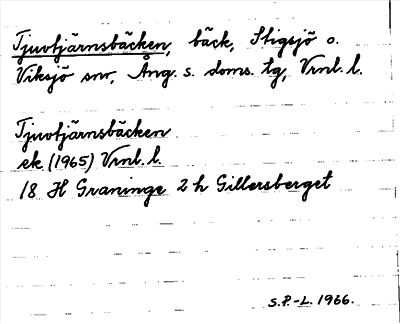 Tjuvtjärnsbäcken, bäck, Stigsjö o.
Viksjö snr, Ång. s. doms. tg, Vrnl. l.
Tjuvtjärnsbäcken
ek (1965) Vrnl. l.
18 H Graninge 2 h Gillersberget
S.P.-L. 1966.